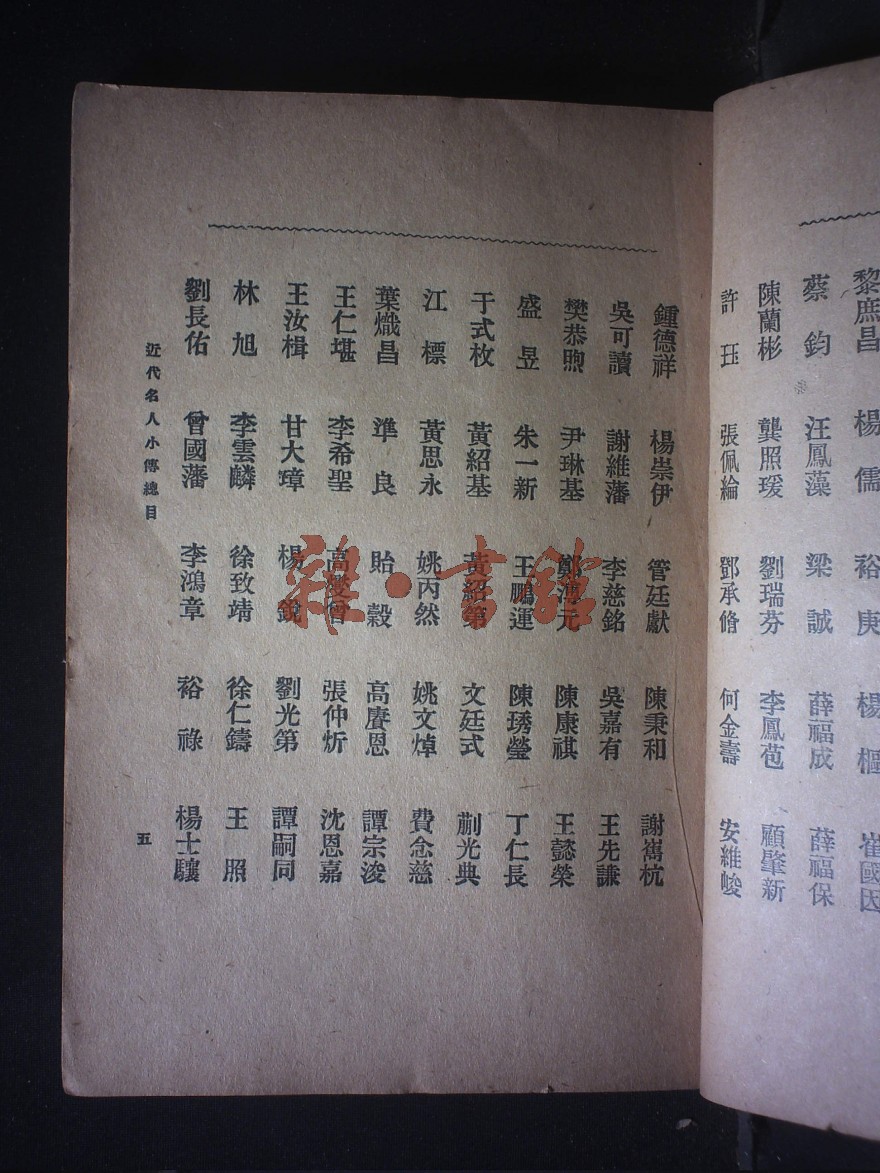 黎庶昌 楊儒 裕庚 楊樞 崔國因
蔡鈞 汪鳳藻 梁誠 薛福成 薛福保
陳蘭彬 龔照瑗 劉瑞芬 李鳳苞 顧肇新
許珏 張佩綸 鄧承脩 何金壽 安維峻
鍾德祥 楊崇伊 管廷獻 陳秉和 謝雋杭
吳可讀 謝維藩 李慈銘 吳嘉有 王先謙
樊恭煦 尹琳基 鄭溥元 陳康祺 王懿榮
盛昱 朱一新 王鵬運 陳琇瑩 丁仁長
于式枚 黃紹基 黃紹第 文廷式 蒯光典
江標 黃思永 姚丙然 姚文焯 費念慈
葉熾昌 準良 貽穀 高賡恩 譚宗浚
王仁堪 李希聖 高燮曾 張仲炘 沈恩嘉
王汝楫 甘大璋 楊銳 劉光第 譚嗣同
林旭 李雲麟 徐致靖 徐仁鑄 王照
劉長佑 曾國藩 李鴻章 裕祿 楊士驤
近代名人小傳總目
五
雜·書館